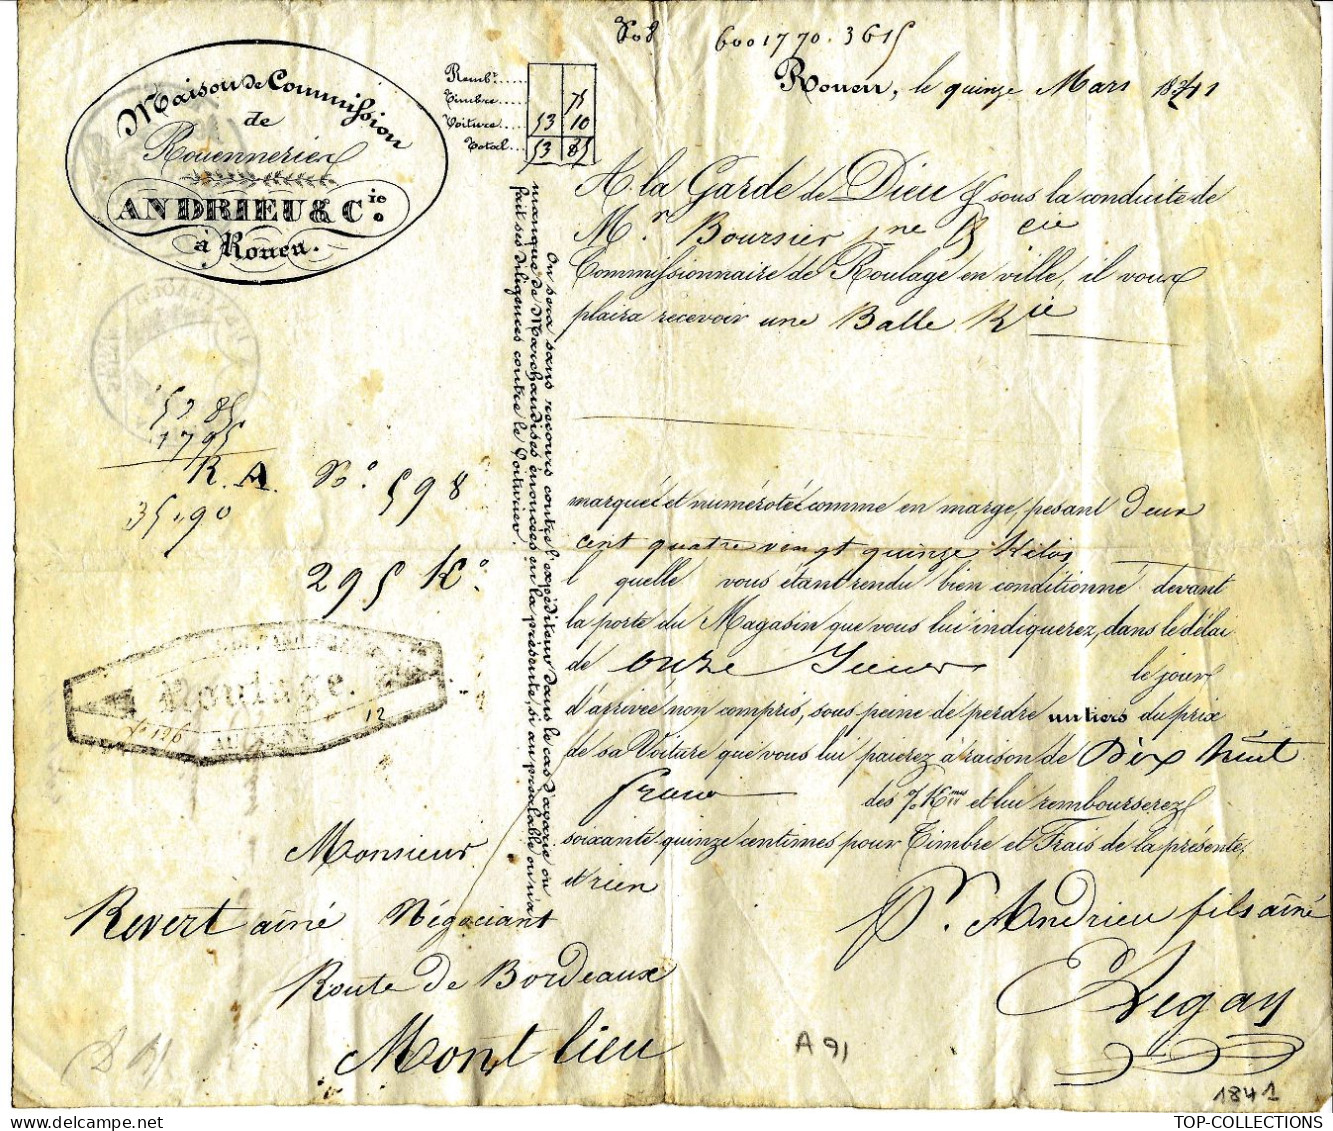 608 6001770.3615
Maison de Commission
de
Rouenneries
ANDRIEU & Cie.
à Rouen.
Rembt.....
Timbre.... 75
Voiture.... 53 10
Total... 53 85
Rouen, le quinze Mars 1841
A la Garde de Dieu & sous la conduite de
Mr. Boursier jne & cie
Commissionnaire de Roulage en ville, il vous
plaira recevoir une Balle Rie
On sera sans recours contre l'expéditeur dans le cas d'avarie ou
manque de Marchandises énoncées en la présente, si au préalable on n'a
fait ses diligences contre le Voiturier.
53 85
1795
R.A. No. 598
35.90
295 Ko.
marqué et numéroté comme en marge, pesant Deux
cent quatre vingt quinze Kilos
l quelle vous étant rendu bien conditionné devant
la porte du Magasin que vous lui indiquerez, dans le délai
de onze Jours le jour
d'arrivée non compris, sous peine de perdre un tiers du prix
de sa Voiture que vous lui paierez à raison de Dix huit
francs des % Kmes et lui rembourserez
soixante-quinze centimes pour Timbre et Frais de la présente,
et rien
Roulage.
12
Monsieur
Revert aîné Négociant
Route de Bordeaux
Montlieu
Pr. Andrieu fils aîné
Legay
A 91
1841
TOP-COLLECTIONS